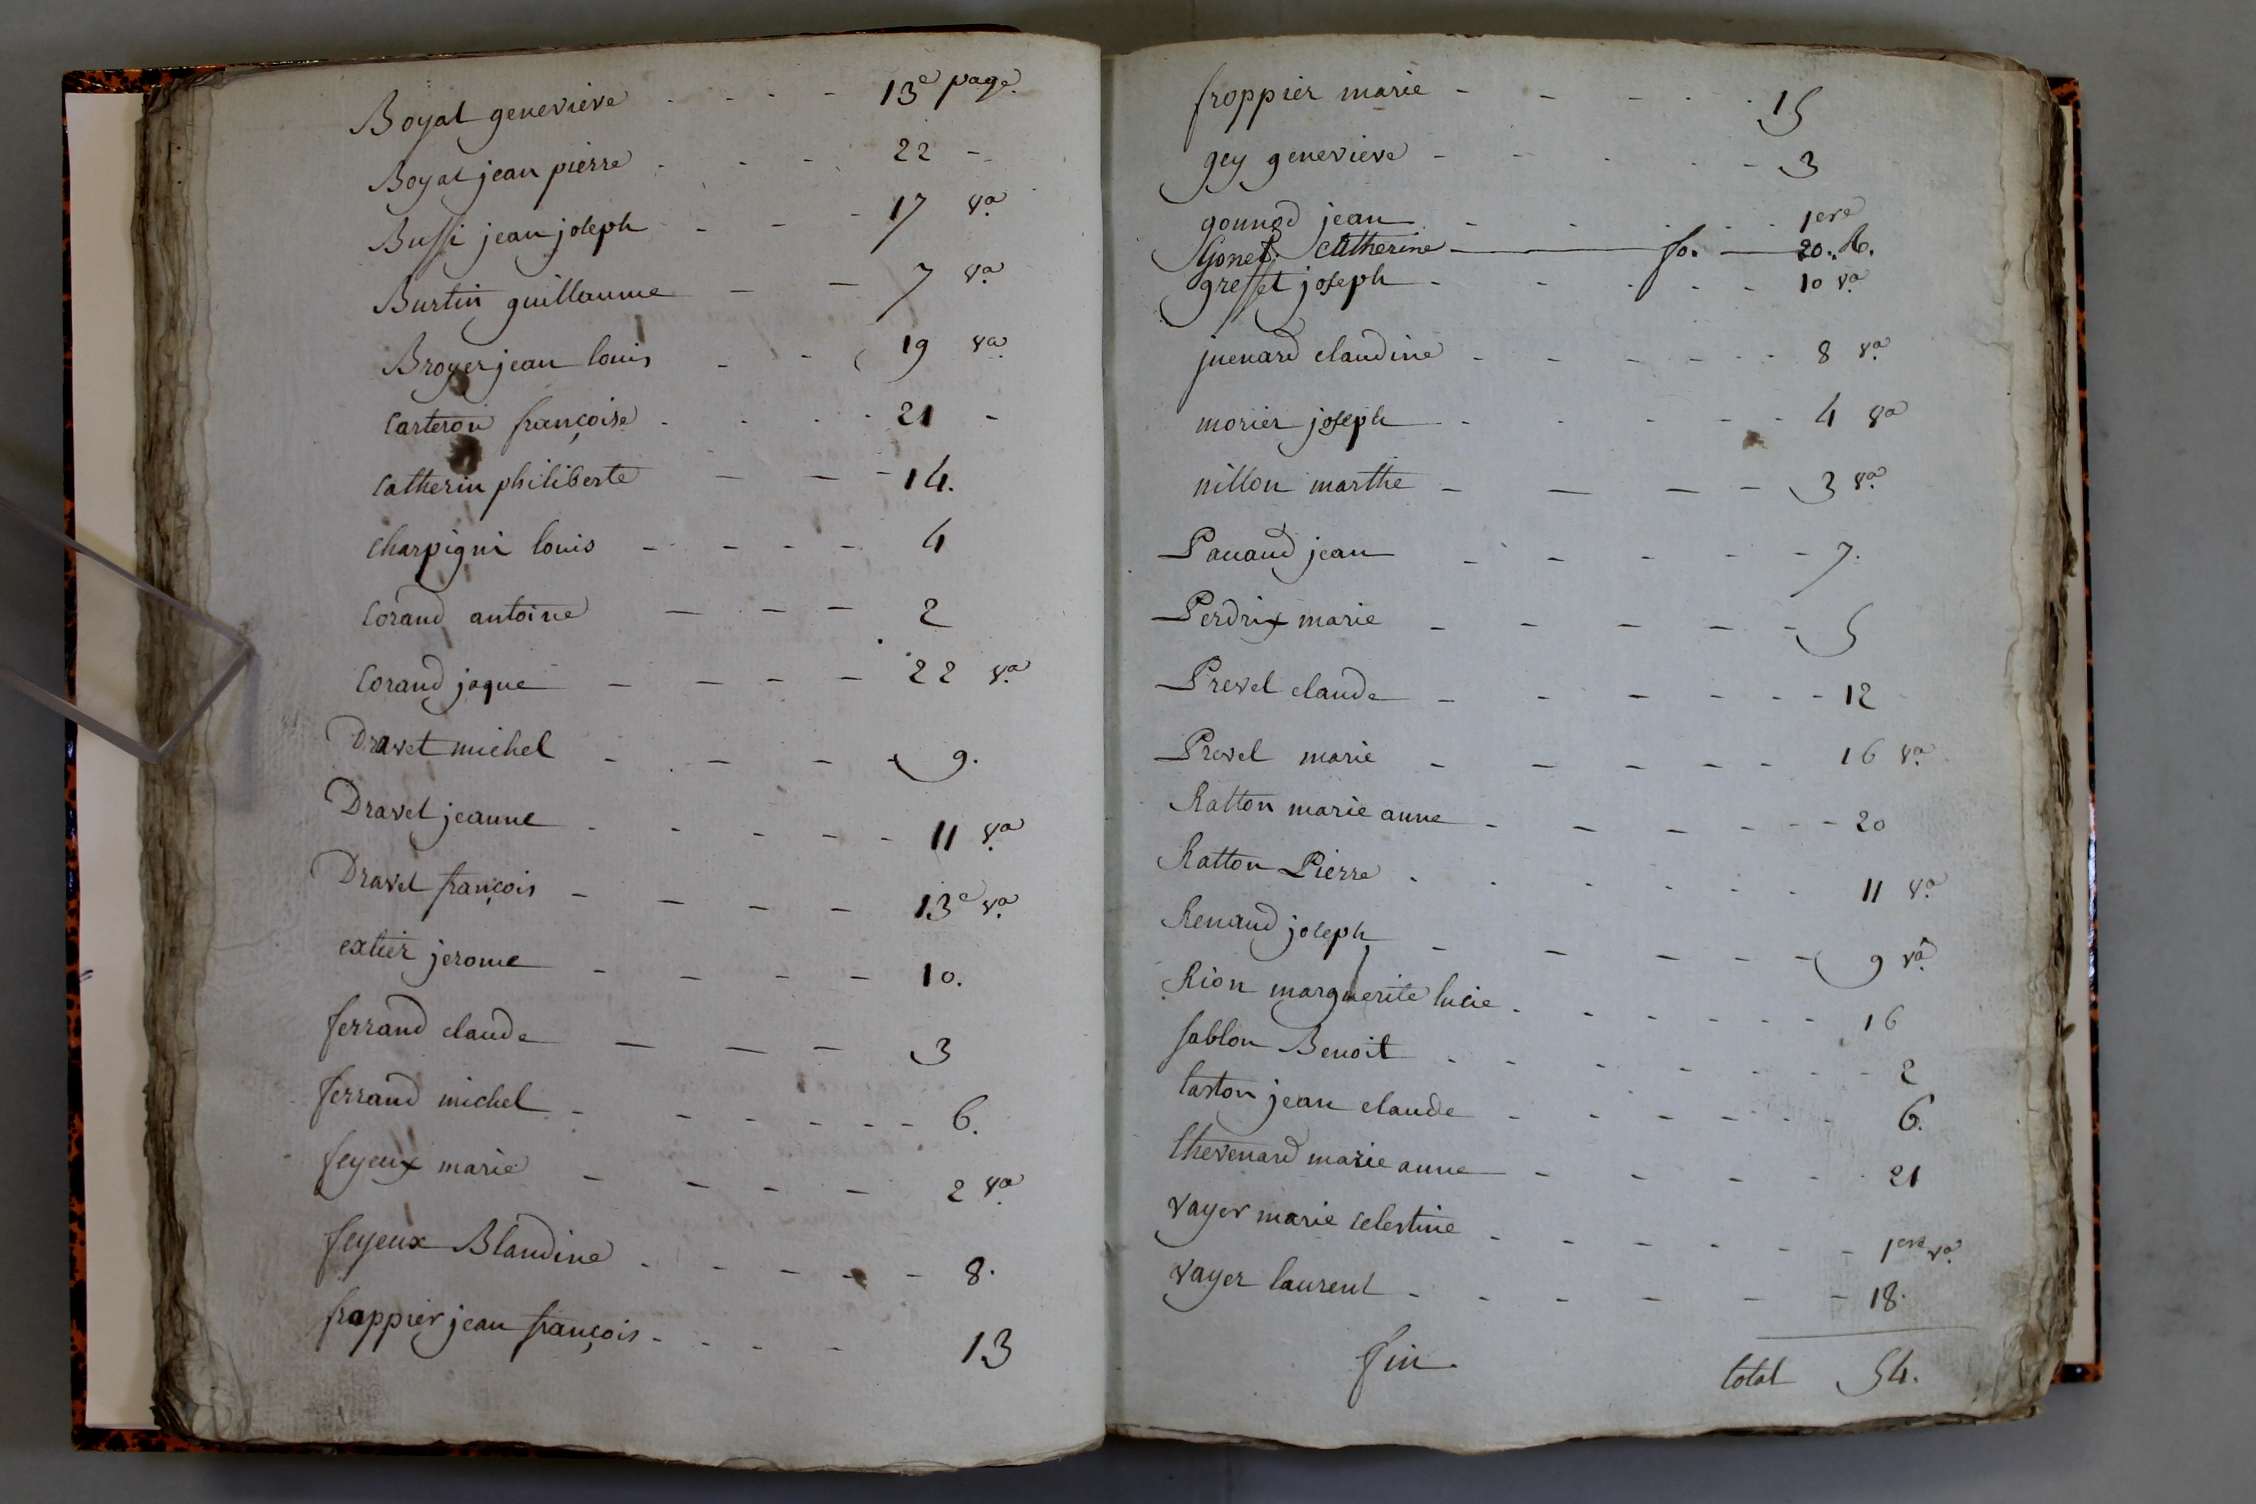 Boyat genevieve - - - - 13e page.
Boyat jean pierre - - - 22 -
Bussi jean joseph - - - 17 vo
Burtin guillaume - - 7 vo
Broyer jean louis - - 19 vo
Carteron françoise - - - 21 -
Catherin philiberte - - - 14.
Charpigni louis - - - - 4
Corand antoine - - - 2
Corand jaque - - - - 22 vo
Dravet michel - - - - 9.
Dravet jeanne - - - - - 11 vo
Dravet françois - - - - 13e vo
extier jerome - - - - 10.
ferrand claude - - - 3
ferrand michel - - - - - - 6.
feyeux marie - - - - 2 vo
feyeux Blandine - - - - - 8.
frappier jean françois - - - - 13
froppier marie - - - - - 15
gey genevieve - - - - - 3
gounod jean - - - - - 1ere
Gonet Catherine - fo. - 20.
gresset joseph - - - - - 10 vo
juenard claudine - - - - - - 8 vo
morier joseph - - - - - 4 vo
nillon marthe - - - - 3 vo
Pauaud jean - - - - - 7.
Perdrix marie - - - - - 5
Prevel claude - - - - - - 12
Prevel marie - - - - - 16 vo
Ratton marie anne - - - - - - 20
Ratton Pierre - - - - - - 11 vo
Renaud joseph - - - - - 9 vo
Rion marguerite lucie - - - - - - 16
Sablon Benoit - - - - - - - 2
tarton jean claude - - - - - - 6.
thevenard marie anne - - - - - 21
vayer marie celestine - - - - - - 1ere vo
vayer laurent - - - - - - 18.
fin.
total 54.